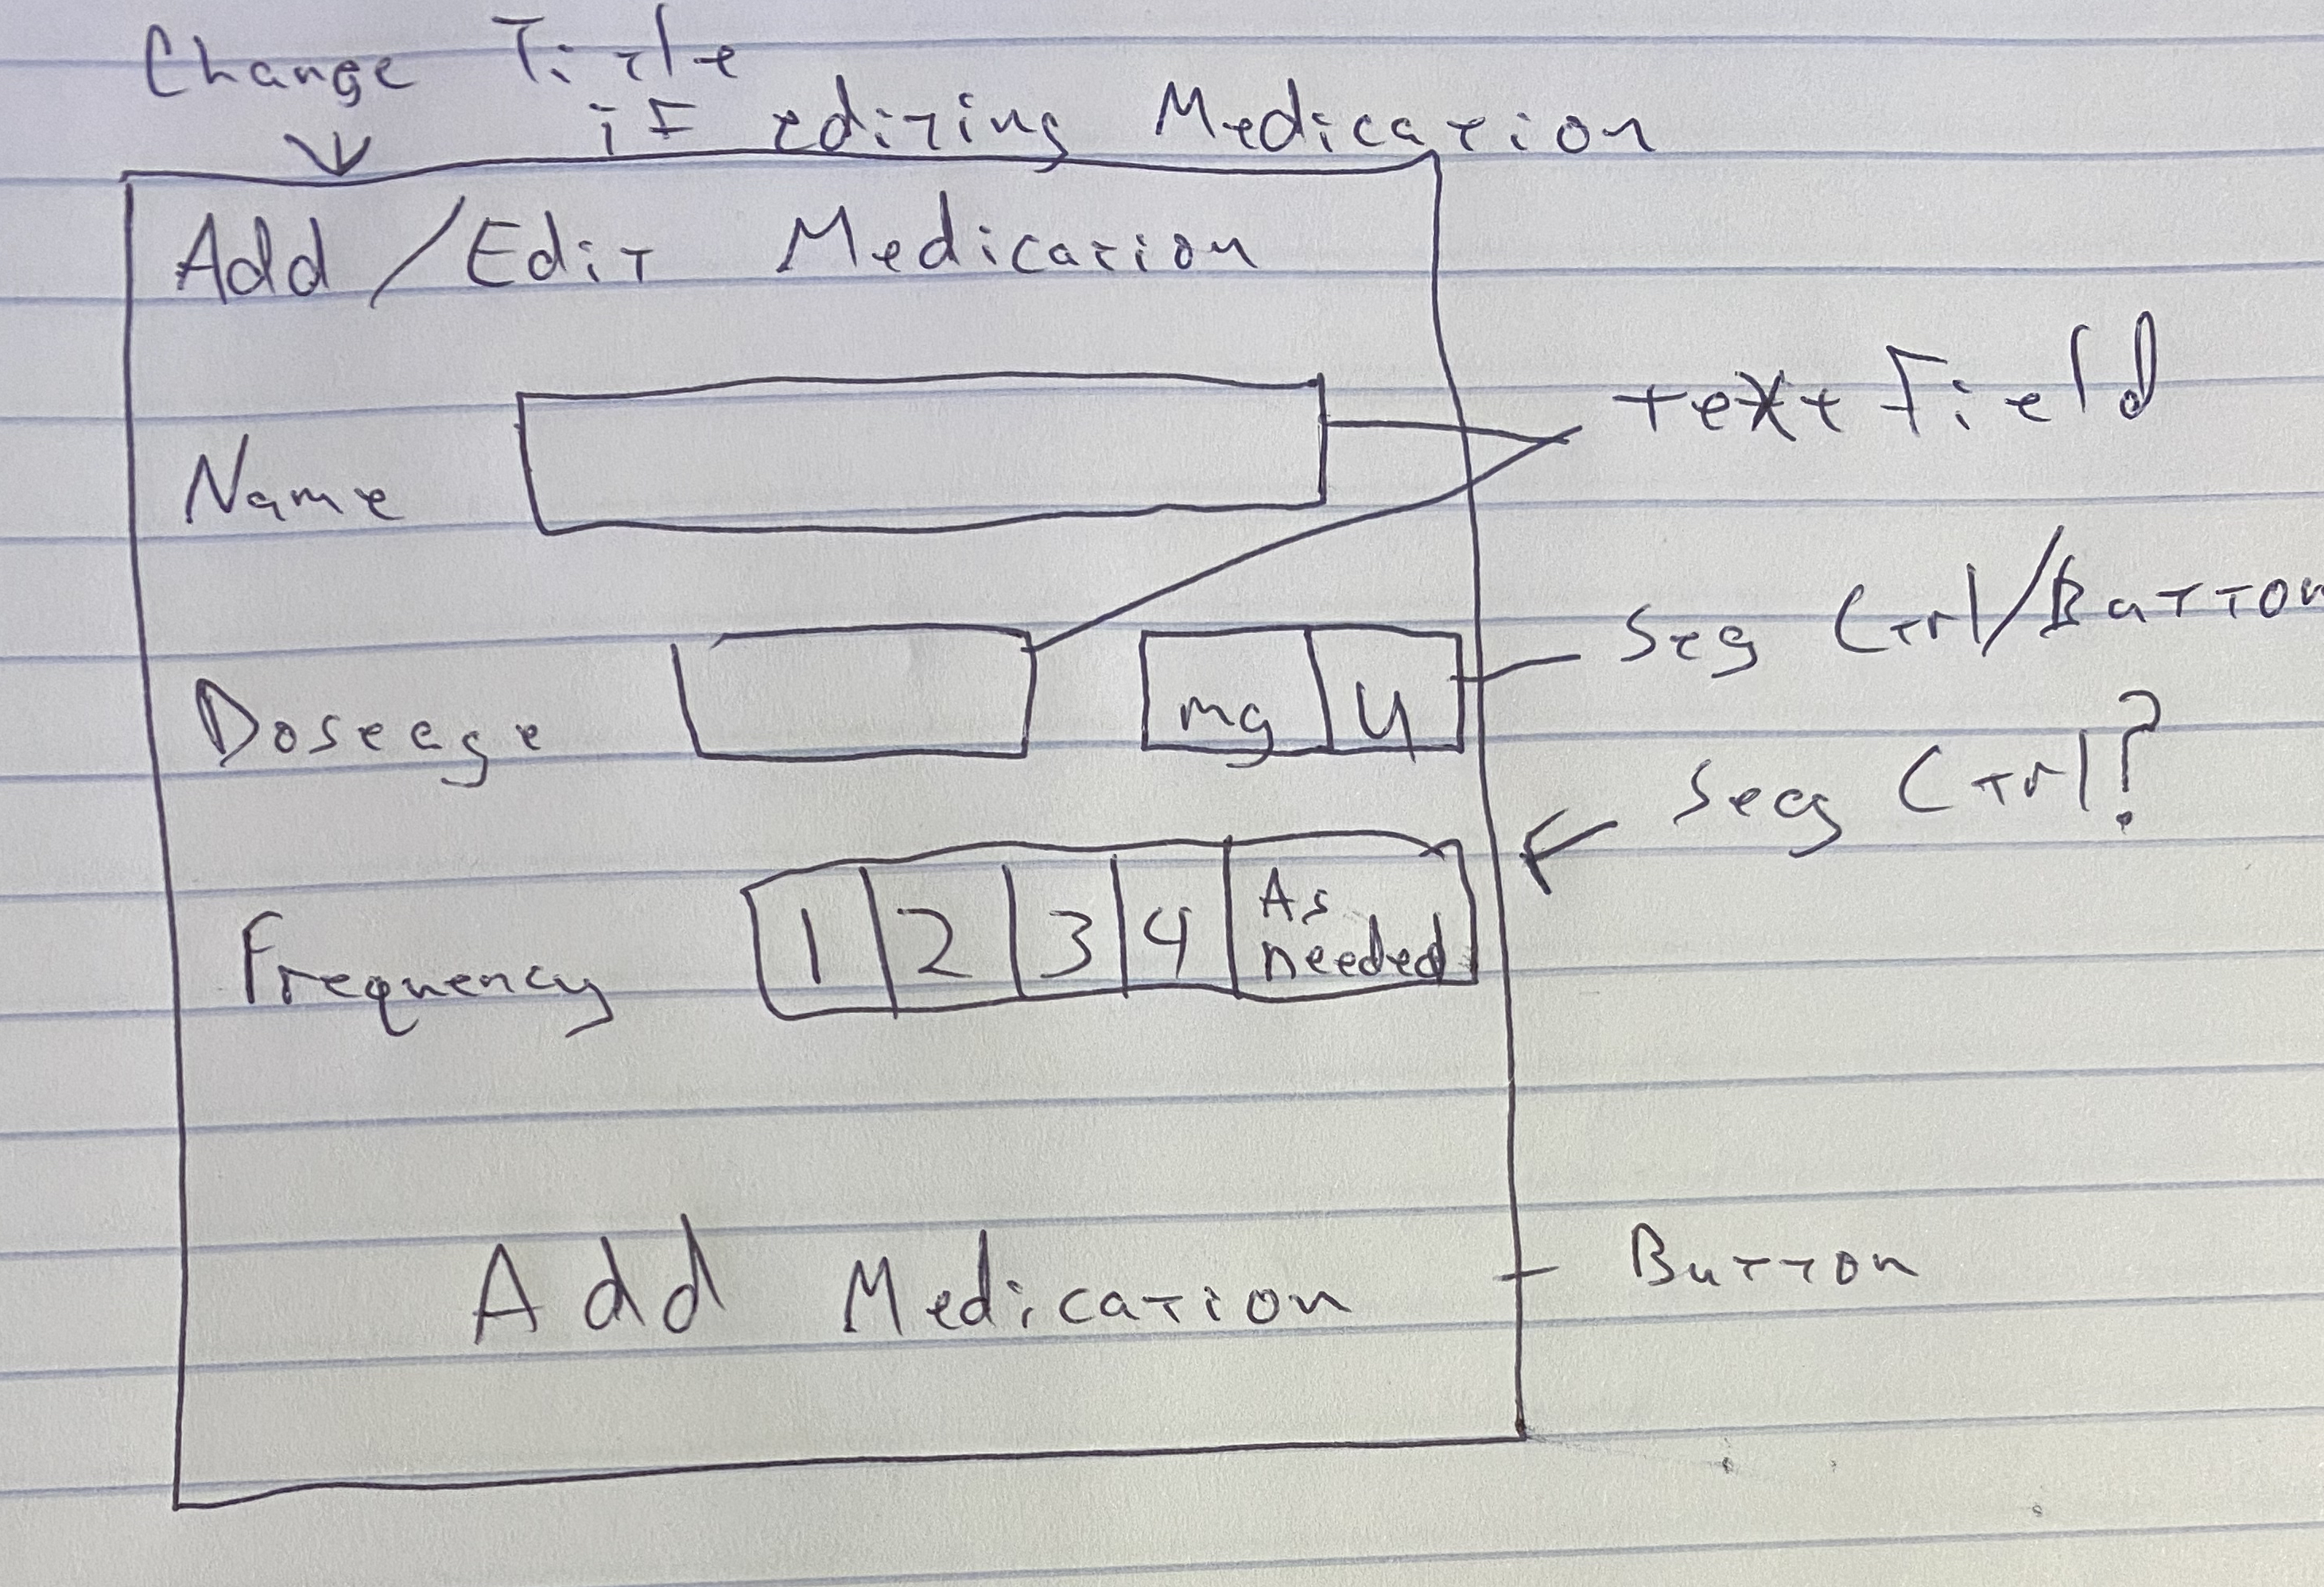 Change Title
if editing Medication
Add/Edit Medication
Name
text Field
Doseage
mg
u
Seg Ctrl/Button
Frequency
1
2
3
4
As
needed
Seg Ctrl?
Add Medication
Button